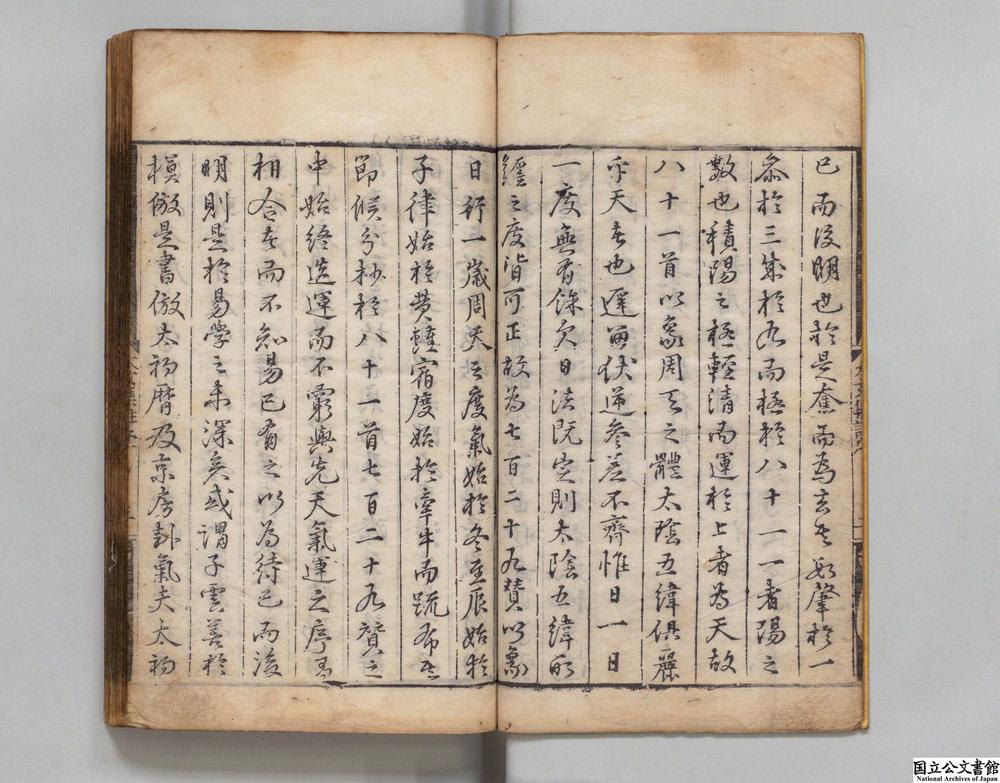 已而後明也於是奮而為玄其數肇於一
參於三集於九而極於八十一一者陽之
數也積陽之極輕清而運於上者為天故
八十一首以象周天之體太陰五緯俱麗
乎天者也遲留伏逆參差不齊惟日一日
一度無有餘欠日法既定則太陰五緯所
纏之度皆可正故為七百二十九贊以象
日行一歲周天之度氣始於冬至辰始於
子律始於黃鍾宿度始於牽牛而踈布其
節候分杪於八十一首七百二十九贊之
中始終迭運而不窮與先天氣運之序有
相合者而不知易已有之以為待己而後
明則是於易學之未深矣或謂子雲善於
模倣是書倣太初曆及京房卦氣夫太初
国立公文書館
National Archives of Japan